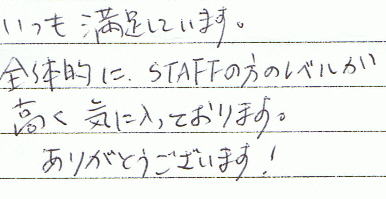 いつも満足しています。
全体的に、STAFFの方のレベルが
高く気に入っております。
ありがとうございます!